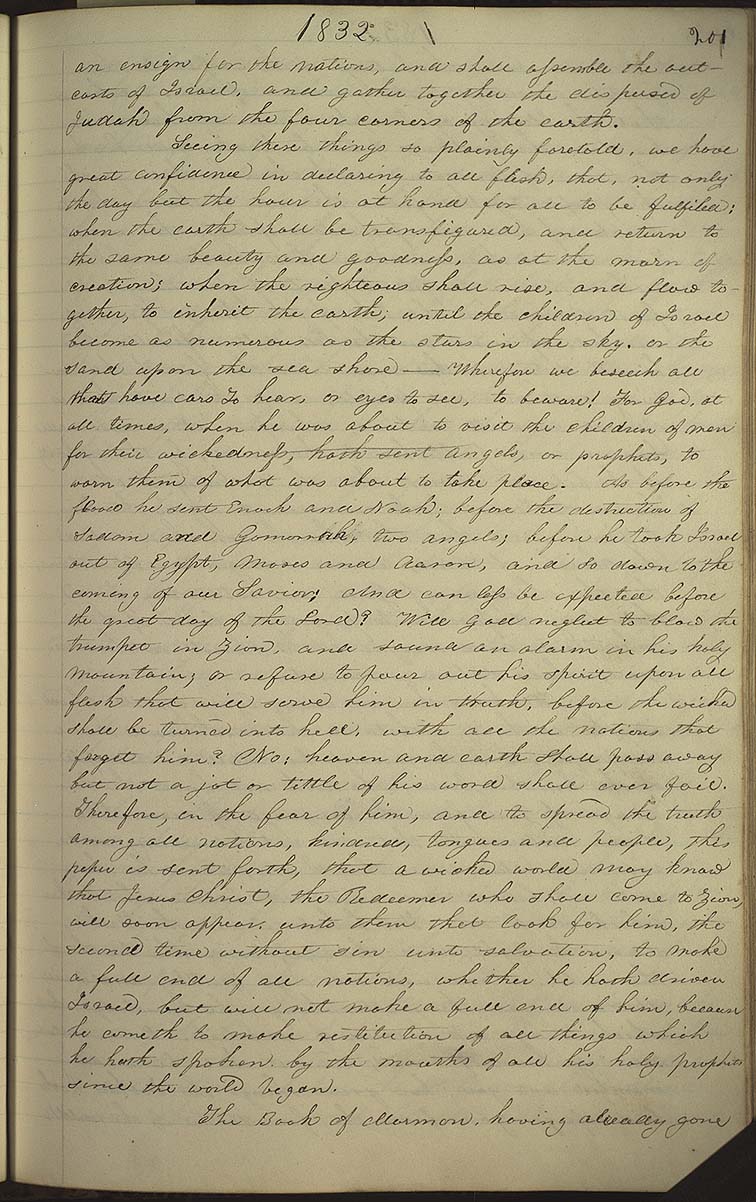 1832
201
an ensign for the nations, and shall assemble the out-
casts of Israel, and gather together the dispersed of
Judah from the four corners of the earth.
Seeing these things so plainly foretold, we have
great confidence in declaring to all flesh, that, not only
the day but the hour is at hand for all to be fulfiled;
when the earth shall be transfigured, and return to
the same beauty and goodness, as at the morn of
creation; when the righteous shall rise, and flow to-
gether, to inherit the earth; until the children of Israel
become as numerous as the stars in the sky, or the
sand upon the sea shore — Wherefore we beseech all
that have ears To hear, or eyes to see, to beware! For God, at
all times, when he was about to visit the children of men
for their wickedness, hath sent angels, or prophets, to
warn them of what was about to take place. As before the
flood he sent Enoch and Noah; before the destruction of
Sadom and Gomorrah, two angels; before he took Israel
out of Egypt, Moses and Aaron, and so down to the
coming of our Savior; And can less be expected before
the great day of the Lord? Will God neglect to blow the
trumpet in Zion, and sound an alarm in his holy
mountain; or refuse to pour out his spirit upon all
flesh that will serve him in truth, before the wicked
shall be turned into hell, with all the nations that
forget him? No; heaven and earth shall pass away
but not a jot or tittle of his word shall ever fail.
Therefore, in the fear of him, and to spread the truth
among all nations, kindred, tongues and people, this
paper is sent forth, that a wicked world may know
that Jesus Christ, the Redeemer who shall come to Zion,
will soon appear, unto them that look for him, the
second time without sin unto salvation, to make
a full end of all nations, whether he hath driven
Israel, but will not make a full end of him, because
he cometh to make restitution of all things which
he hath spoken by the mouths of all his holy prophets
since the world began.
The Book of Mormon, having already gone